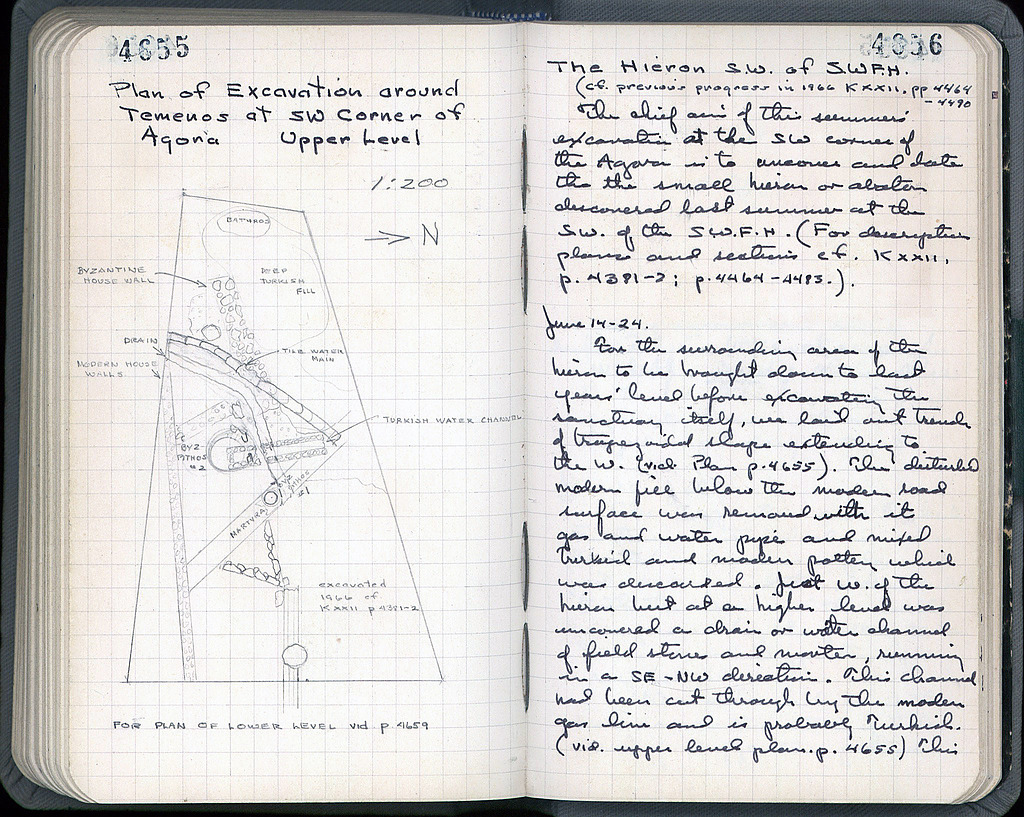 4655
Plan of Excavation around
Temenos at SW Corner of
Agora Upper Level
1:200
BATHROS
→ N
BYZANTINE
HOUSE WALL
DEEP
TURKISH
FILL
DRAIN
TILE WATER
MAIN
MODERN HOUSE
WALLS
TURKISH WATER CHANNEL
BYZ
PITHOS
#2
BYZ
PITHOS
#1
MARTYRA
excavated
1966 cf.
K XXII p 4381-2
FOR PLAN OF LOWER LEVEL vid. p. 4659
4656
The Hieron S.W. of SWFH.
(cf. previous progress in 1966 K XXII, pp 4464
- 4490
The chief aim of this summers'
excavation at the SW corner of
the Agora is to uncover and date
the the small hieron or abaton
discovered last summer at the
SW. of the S.W.F.H. (For description
plans and sections cf. K XXII,
p. 4381-2; p. 4464-4493.).
June 14-24.
For the surrounding area of the
hieron to be brought down to last
years' level before excavating the
sanctuary itself, we laid out trench
of trapezoidal shape extending to
the W. (vid. Plan p. 4655). The disturbed
modern fill below the modern road
surface was removed with it
gas and water pipes and mixed
Turkish and modern pottery which
was discarded. Just W. of the
hieron but at a higher level was
uncovered a drain or water channel
of field stones and mortar, running
in a SE-NW direction. This channel
had been cut through by the modern
gas line and is probably Turkish.
(vid. upper level plan. p. 4655) This